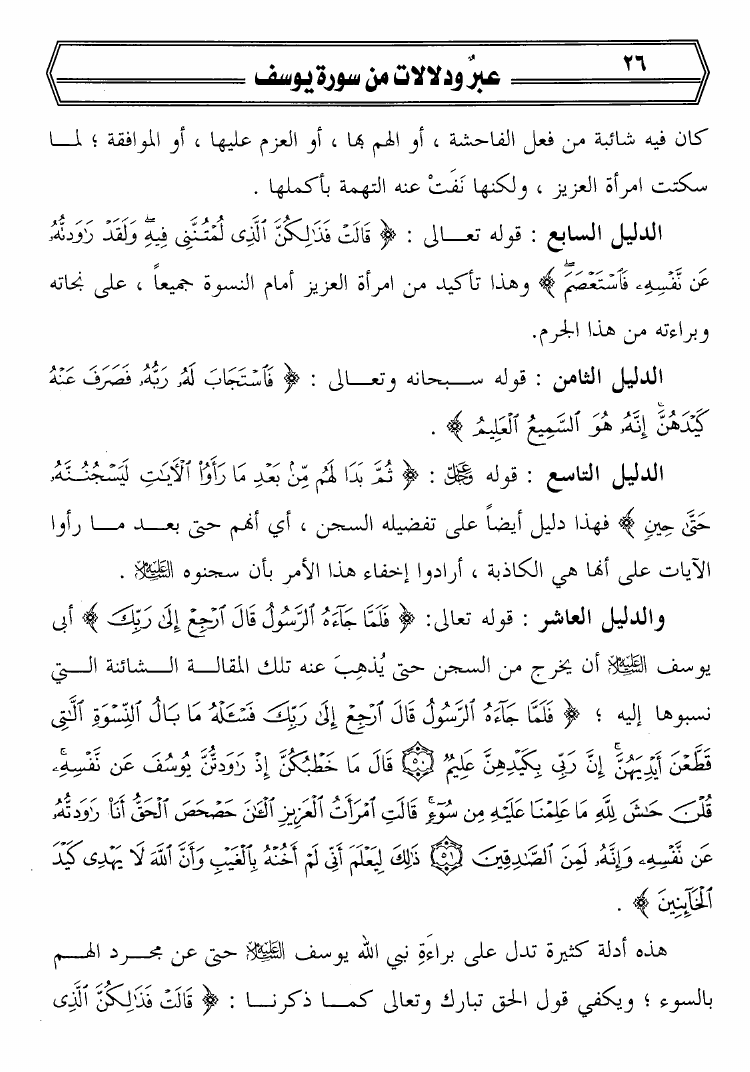 ٢٦
عبرٌ ودلالات من سورة يوسف
كان فيه شائبة من فعل الفاحشة ، أو الهم بها ، أو العزم عليها ، أو الموافقة ؛ لمـــا
سكتت امرأة العزيز ، ولكنها نَفَتْ عنه التهمة بأكملها .
الدليل السابع : قوله تعـــالى : ﴿ قَالَتْ فَذَٰلِكُنَّ ٱلَّذِى لُمْتُنَّنِى فِيهِۖ وَلَقَدْ رَٰوَدتُّهُۥ
عَن نَّفْسِهِۦ فَٱسْتَعْصَمَۖ ﴾ وهذا تأكيد من امرأة العزيز أمام النسوة جميعاً ، على نجاته
وبراءته من هذا الجرم.
الدليل الثامن : قوله ســبحانه وتعـــالى : ﴿ فَٱسْتَجَابَ لَهُۥ رَبُّهُۥ فَصَرَفَ عَنْهُ
كَيْدَهُنَّۚ إِنَّهُۥ هُوَ ٱلسَّمِيعُ ٱلْعَلِيمُ ﴾ .
الدليل التاسع : قوله عز وجل : ﴿ ثُمَّ بَدَا لَهُم مِّنۢ بَعْدِ مَا رَأَوُا۟ ٱلْءَايَٰتِ لَيَسْجُنُنَّهُۥ
حَتَّىٰ حِينٍ ﴾ فهذا دليل أيضاً على تفضيله السجن ، أي أنهم حتى بعـــد مـــا رأوا
الآيات على أنها هي الكاذبة ، أرادوا إخفاء هذا الأمر بأن سجنوه عليه السلام .
والدليل العاشر : قوله تعالى: ﴿ فَلَمَّا جَآءَهُ ٱلرَّسُولُ قَالَ ٱرْجِعْ إِلَىٰ رَبِّكَ ﴾ أبى
يوسف عليه السلام أن يخرج من السجن حتى يُذهِبَ عنه تلك المقالـــة الـــشائنة الـــتي
نسبوها إليه ؛ ﴿ فَلَمَّا جَآءَهُ ٱلرَّسُولُ قَالَ ٱرْجِعْ إِلَىٰ رَبِّكَ فَسْـَٔلْهُ مَا بَالُ ٱلنِّسْوَةِ ٱلَّٰتِى
قَطَّعْنَ أَيْدِيَهُنَّۚ إِنَّ رَبِّى بِكَيْدِهِنَّ عَلِيمٌ ۝٥٠ قَالَ مَا خَطْبُكُنَّ إِذْ رَٰوَدتُّنَّ يُوسُفَ عَن نَّفْسِهِۦۚ
قُلْنَ حَٰشَ لِلَّهِ مَا عَلِمْنَا عَلَيْهِ مِن سُوٓءٍۚ قَالَتِ ٱمْرَأَتُ ٱلْعَزِيزِ ٱلْـَٰٔنَ حَصْحَصَ ٱلْحَقُّ أَنَا۠ رَٰوَدتُّهُۥ
عَن نَّفْسِهِۦ وَإِنَّهُۥ لَمِنَ ٱلصَّٰدِقِينَ ۝٥١ ذَٰلِكَ لِيَعْلَمَ أَنِّى لَمْ أَخُنْهُ بِٱلْغَيْبِ وَأَنَّ ٱللَّهَ لَا يَهْدِى كَيْدَ
ٱلْخَآئِنِينَ ﴾ .
هذه أدلة كثيرة تدل على براءَةِ نبي الله يوسف عليه السلام حتى عن مجـــرد الهـــم
بالسوء ؛ ويكفي قول الحق تبارك وتعالى كمـــا ذكرنـــا : ﴿ قَالَتْ فَذَٰلِكُنَّ ٱلَّذِى